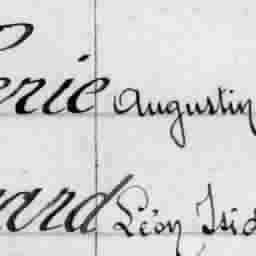 erie Augustin
ard Léon Isid